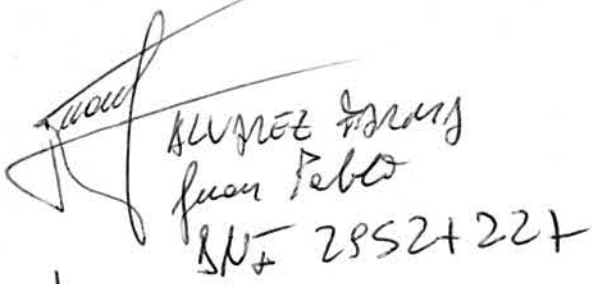 ALVAREZ
Juan Pablo
DNI 29527227